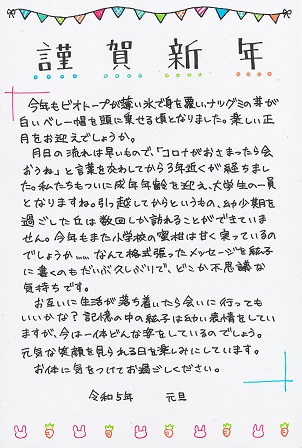 謹賀新年
今年もビオトープが薄い氷で身を覆い、ナツグミの芽が
白いベレー帽を頭に乗せる頃となりました。楽しい正
月をお迎えでしょうか。
月日の流れは早いもので、「コロナがおさまったら会
おうね」と言葉を交わしてから3年近くが経ちまし
た。私たちもついに成年年齢を迎え、大学生の一員
となりますね。引っ越してからというもの、幼少期を
過ごした丘は数回しか訪れることができていま
せん。今年もまた小学校の蜜柑は甘く実っているの
でしょうか……なんて格式張ったメッセージを絵子
に書くのもだいぶ久しぶりで、どこか不思議な
気持ちです。
お互いに生活が落ち着いたら会いに行っても
いいかな?記憶の中の絵子は幼い表情をしてい
ますが、今は一体どんな姿をしているのでしょう。
元気な笑顔を見られる日を楽しみにしています。
お体に気をつけてお過ごしください。
令和5年 元旦